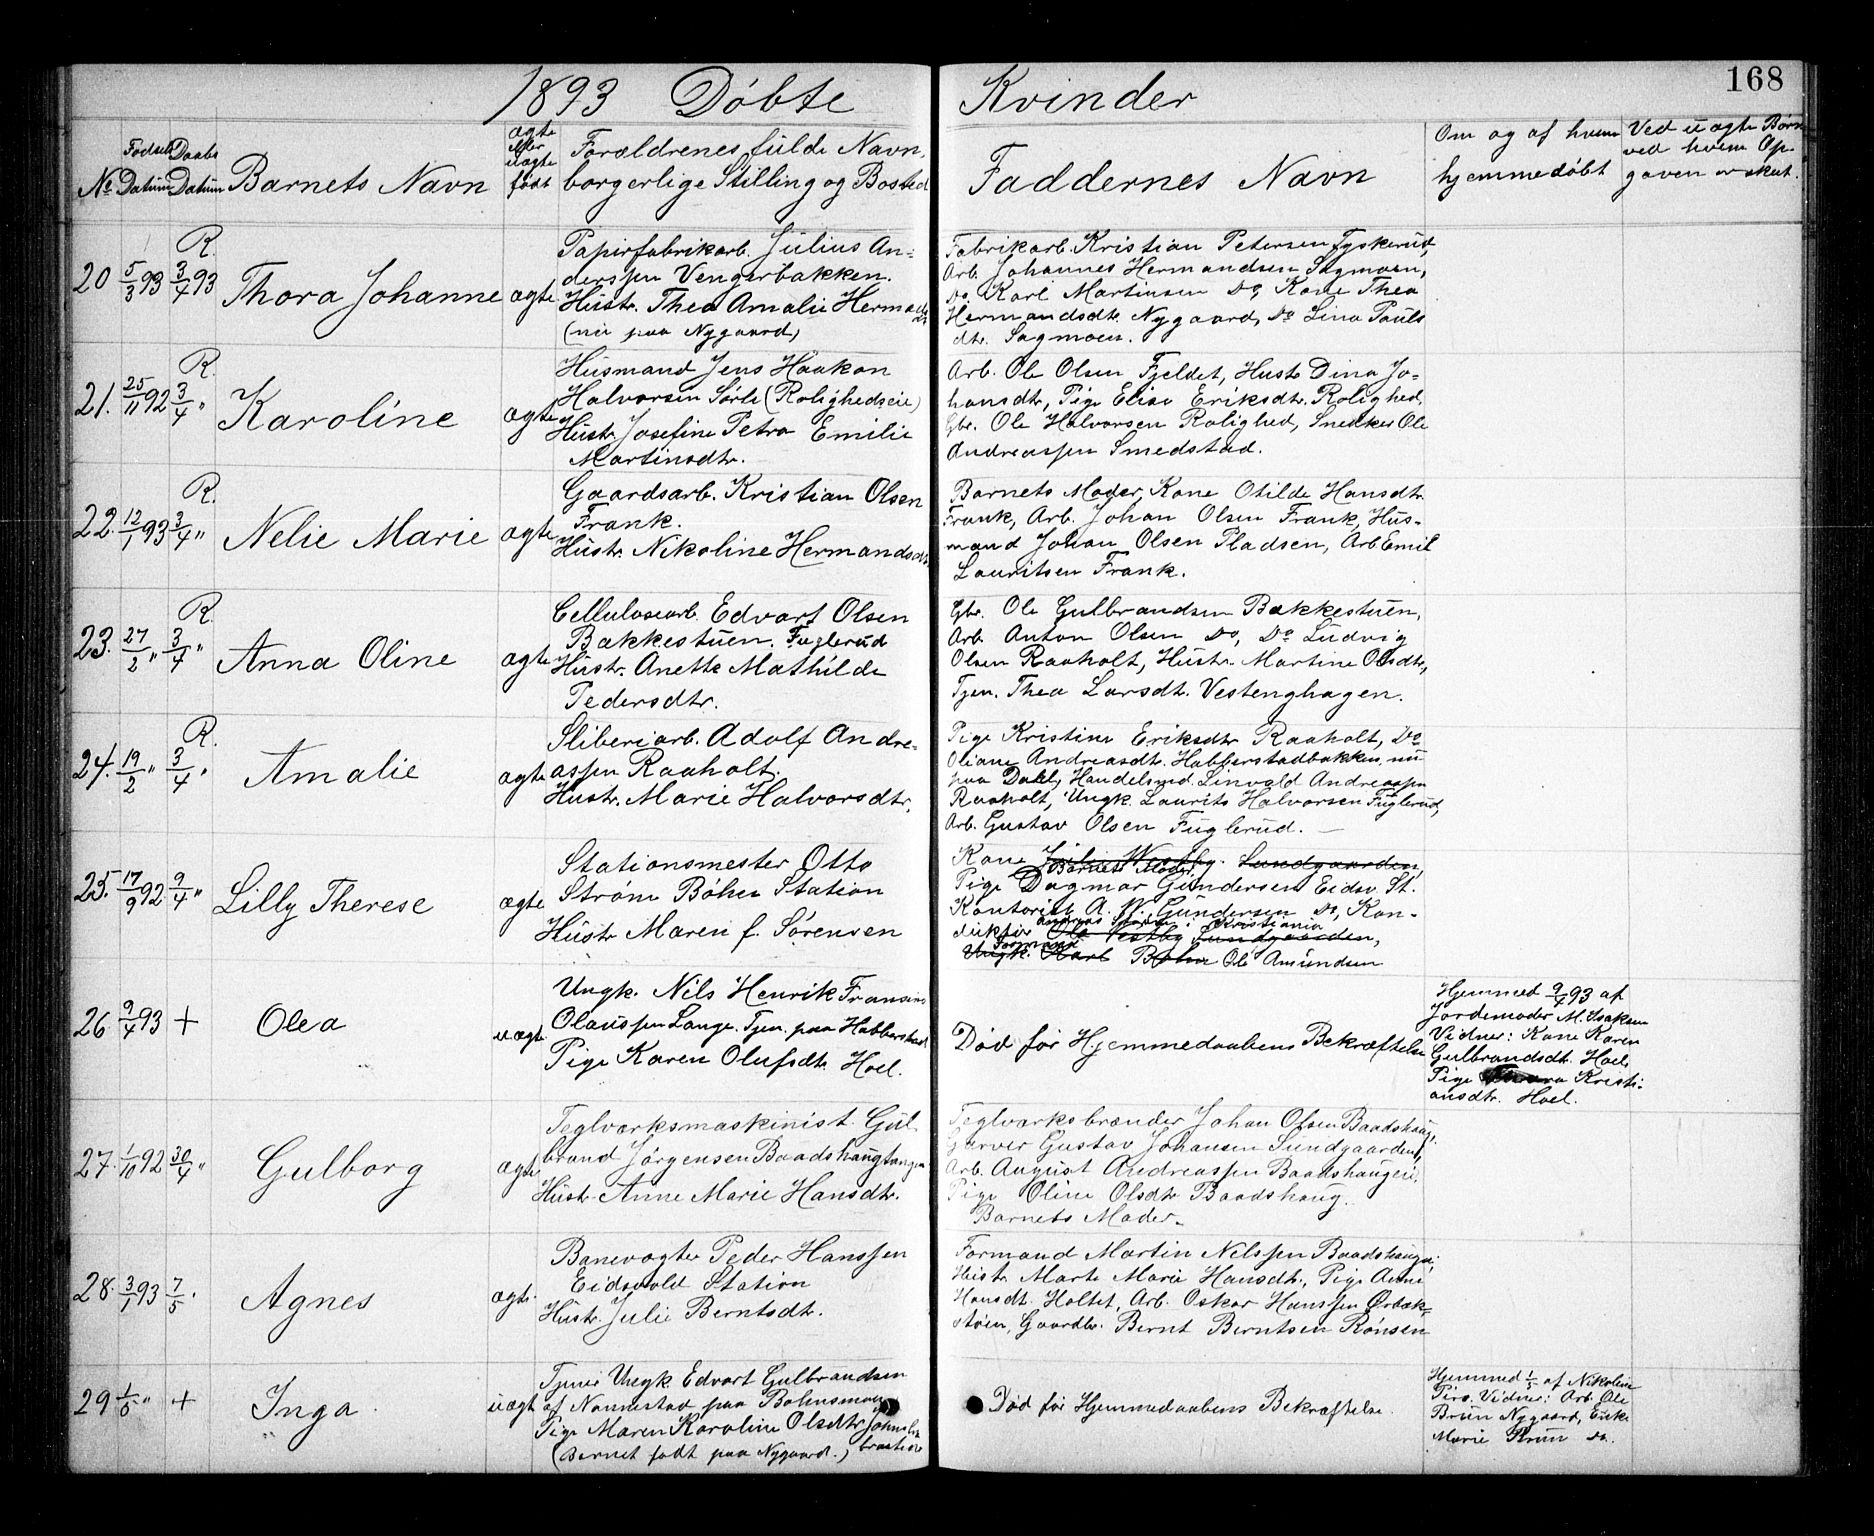 168
1893 Döbte Kvinder
No Födsels Datum Daabs Datum Barnets Navn ægte eller uægte født Forældrenes fulde Navn, borgerlige Stilling og Bosted Faddernes Navn Om og af hvem hjemmedöbt Ved uægte Börn ved hvem Opgaven er skeet.
R.
20 5/3 93 3/4 93 Thora Johanne ægte
Papirfabrikarb. Julius An=
derssen Vengerbakken.
Hustr. Thea Amalie Hermands
(nu paa Nygaard)
Fabrikarb. Kristian Petersen Tyskerud,
Arb. Johannes Hermandsen Sagmoen,
Do. Karl Martinsen Do, Kone Thea
Hermandsdtr. Nygaard, Do Lina Pauls
dtr. Sagmoen.
R.
21. 25/11 92 3/4 " Karoline ægte
Husmand Jens Haakon
Halvorsen Sörli (Rolighedseie)
Hustr. Josefine Petra Emilie
Martinsdtr.
Arb. Ole Olsen Fjeldet, Hustr Dina Jo=
hansdtr, Pige Elise Eriksdtr. Rolighed,
Gbr. Ole Halvorsen Rolighed, Snedker Ole
Andreassen Smedstad.
R.
22. 12/1 93 3/4 " Nelie Marie ægte
Gaardsarb. Kristian Olsen
Frank.
Hustr. Nikoline Hermandsdtr.
Barnets Moder, Kone Otilde Hansdtr
Frank, Arb. Johan Olsen Frank, Hus-
mand Johan Olsen Pladsen, Arb Emil
Lauritsen Frank.
R.
23. 27/2 " 3/4 " Anna Oline ægte
Cellulosearb. Edvart Olsen
Bakkestuen. Fuglerud
Hustr. Anette Mathilde
Pedersdtr.
Gbr. Ole Gulbrandsen Bakkestuen,
Arb. Anton Olsen Do, Do Ludvig
Olsen Raaholt, Hustr. Martine Olsdtr,
Tjen. Thea Larsdtr. Vestenghagen.
R.
24. 19/2 " 3/4 " Amalie ægte
Sliberiarb. Adolf Andre-
assen Raaholt.
Hustr. Marie Halvorsdtr.
Pige Kristine Eriksdtr Raaholt, Do
Oliane Andreasdtr. Habberstadbakken, nu
paa Dahl, Handelsmd. Linvald Andreassen
Raaholt, Ungk. Laurits Halvorsen Fuglerud,
Arb. Gustav Olsen Fuglerud.
25. 17/9 92 9/4 " Lilly Therese ægte
Stationsmester Otto
Ström Böhn Station
Hustr Maren f. Sörensen
Kone Julie Westby. Lundgaarden,
Barnets Moder,
Pige Dagmar Gundersen Eidsv. St.
Kontorist A. W. Gundersen Do, Kon-
Kristiania
duktör Ole Vestby Lundgaarden,
Formand
Ungk. Karl Böhn Ole Amundsen
26 9/4 93 + Olea uægte
Ungk. Nils Henrik Fransins
Olaussen Lange. Tjen. paa Habberstad
Pige Karen Olufsdtr Hoel.
Död för Hjemmedaabens Bekræftelse
Hjemmed 9/4 93 af
Jordemoder M. Isaksen
Vidner: Kone Karen
Gulbrandsdt. Hoel,
Pige Kristi=
ansdtr. Hoel.
27. 1/10 92 30/4 " Gulborg ægte
Teglværksmaskinist Gul
brand Jörgensen Baadshaugtangen
Hustr. Anne Marie Hansdtr.
Teglværksbrænder Johan Olsen Baadshaug,
Garver Gustav Johansen Sundgaarden,
Arb. August Andreassen Baadshaugen,
Pige Oline Olsdtr Baadshaug.
Barnets Moder.
28. 3/1 93 7/5. Agnes ægte
Banevogter Peder Hanssen
Eidsvold Station
Hustr. Julie Berntsdt.
Formand Martin Nilssen Baadshaugen,
Hustr. Marte Marie Hansdt., Pige Anne
Hansdt. Holtet, Arb. Oskar Hanssen Ørbæk-
stöen, Gaardbr. Bernt Berntsen Rönsen
29 1/5 " + Inga uægt
Tjener Ungk. Edvart Gulbrandsen
af Nannestad paa Bohnsmoen
Pige Maren Karoline Olsdtr.
(Barnet födt paa Nygaard.) braatene
Död för Hjemmedaabens Bekræftelse.
Hjemmed 1/5 af Nikoline
Pers. Vidner: Arb. Ole
Brun Nygaard, Enke
Marie Brun Do.